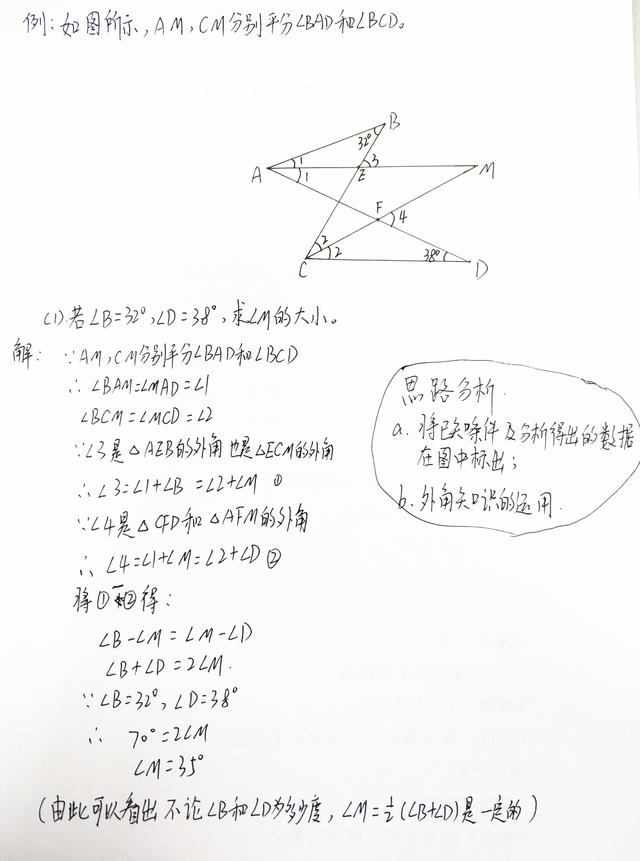 例:如图所示,AM,CM分别平分∠BAD和∠BCD。
B
32°
A
1
1
E
3
M
F
4
2
2
C
38°
D
(1).若∠B=32°,∠D=38°,求∠M的大小。
解:∵AM,CM分别平分∠BAD和∠BCD
∴∠BAM=∠MAD=∠1
∠BCM=∠MCD=∠2
∵∠3是△AEB的外角也是△ECM的外角
∴∠3=∠1+∠B=∠2+∠M ①
∵∠4是△CFD和△AFM的外角
∴∠4=∠1+∠M=∠2+∠D ②
将①-②得:
∠B-∠M=∠M-∠D
∠B+∠D=2∠M.
∵∠B=32°,∠D=38°
∴ 70°=2∠M
∠M=35°
(由此可以看出不论∠B和∠D为多少度,∠M=½(∠B+∠D)是一定的)
思路分析.
a.将已知条件及分析得出的数据
在图中标出;
b.外角知识的运用.